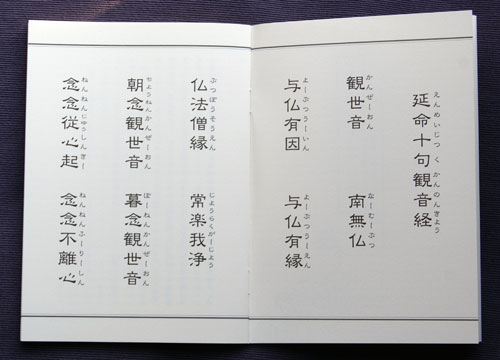 えんめいじつくかんのんきよう
延命十句観音経
かんぜーおん なーむーぶつ
観世音 南無仏
よーぶつうーいん よーぶつうーえん
与仏有因 与仏有縁
ぶつぽうそうえん じようらくがーじよう
仏法僧縁 常楽我浄
ちようねんかんぜーおん ぼーねんかんぜーおん
朝念観世音 暮念観世音
ねんねんじゆうしんきー ねんねんふーりーしん
念念従心起 念念不離心